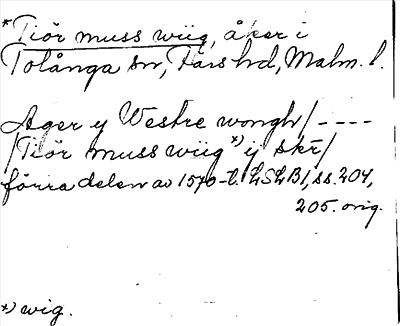 *Tiör muss wiig, åker i
Tolånga sn, Färs hd, Malm. l.
Ager y Westre wongh/----
/Tiör muss wiig*) y skr/
förra delen av 1570-t. LSLB1, ss. 204,
205. orig.
*) wig.